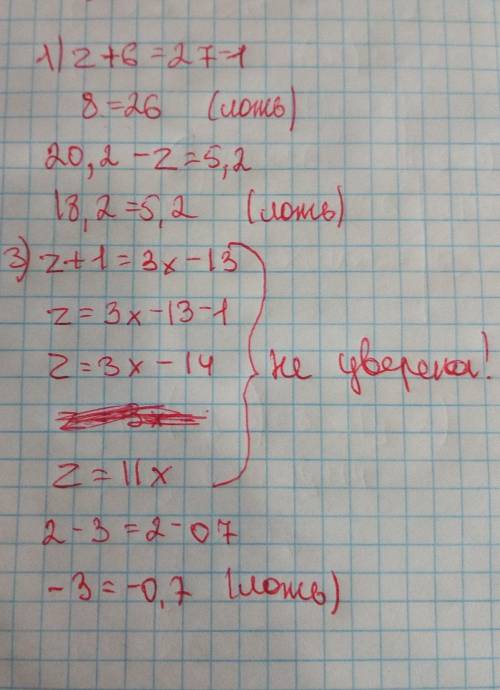 1) z+6=27-1
8=26 (ложь)
20,2-z=5,2
18,2=5,2 (ложь)
3) z+1=3x-13
z=3x-13-1
z=3x-14
не уверена!
z=11x
2-3=2-07
-3=-0,7 (ложь)